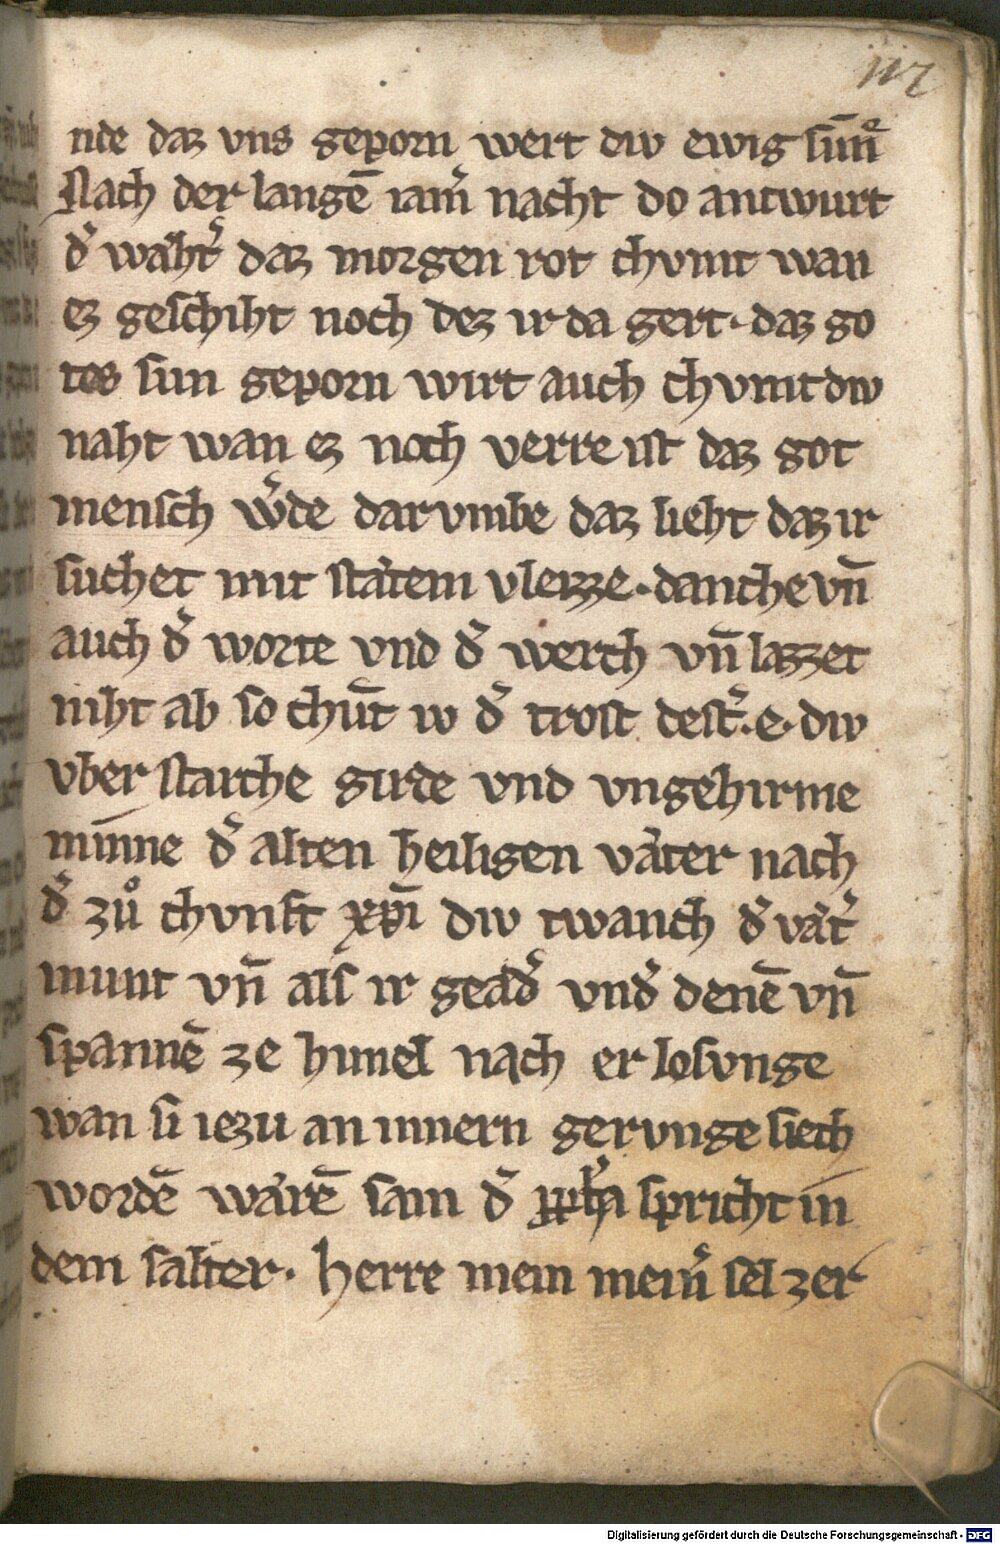 112
nde daz vns geporn wert diw ewig sūnͤ
Nach der langē iam̄ nacht do antwurt
d᷑ wäht᷑ daz morgen rot chvmt wan
ez geschiht noch dez ir da gert · daz go
tes sun geporn wirt auch chvmt diw
naht wan ez noch verre ist daz got
mensch w᷑de dar vmbe daz lieht daz ir
suchet mit stätem vleizze · danche vn̄
auch d᷑ worte vnd d᷑ werch vn̄ lazzet
niht ab so chūt iv d᷑ trost dest᷑ · e · diw
vber starche girde vnd vngehirme
minne d᷑ alten heiligen väter nach
d᷑ zů chvnft xp̄i diw twanch d᷑ vät᷑
munt vn̄ als ir gead᷑ vnd᷑ denē vn̄
spannē ze himel nach er losvnge
wan si iezu an innern gervnge siech
wordē wärē sam d᷑ spricht in
dem salter · herre mein mein᷑ sel zer
Digitalisierung gefördert durch die Deutsche Forschungsgemeinschaft - DFG